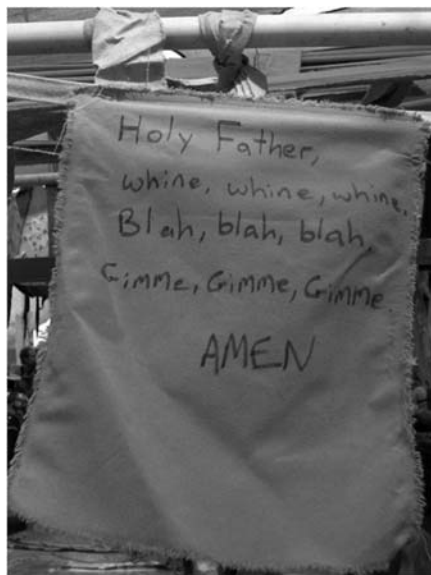 Holy Father,
whine, whine, whine,
Blah, blah, blah,
Gimme, Gimme, Gimme
AMEN